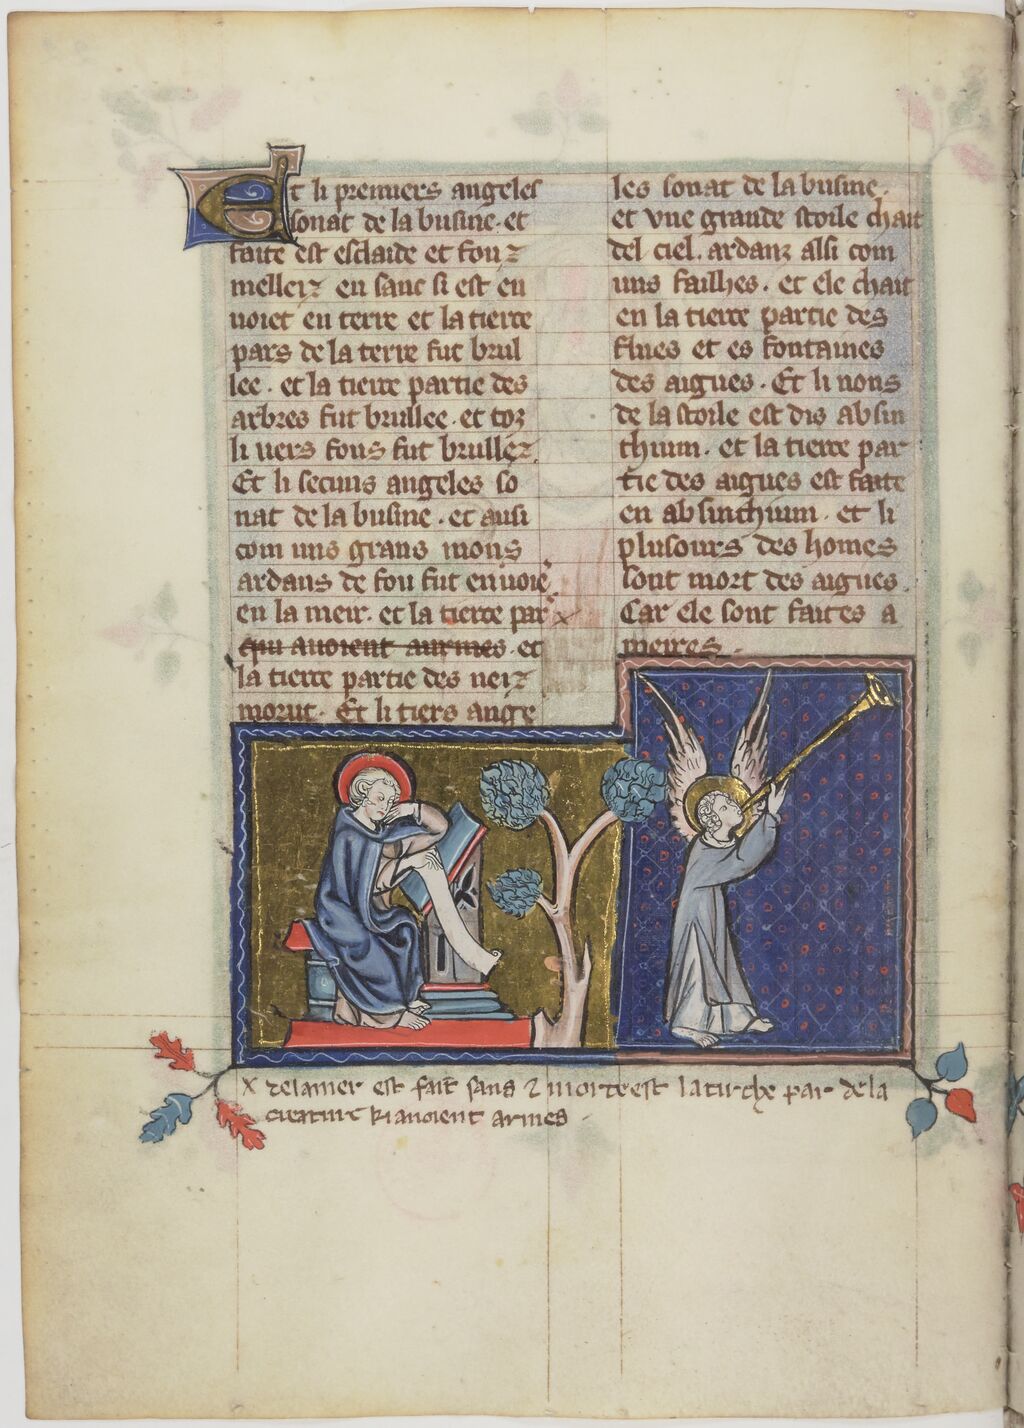 Et li premiers angeles
sonat de la busine. et
faite est esclaide et fou
melleiz en sanc si est en
uoiet en terre et la tierce
pars de la terre fut brul
lee. et la tierce partie des
arbres fut brullee. et toz
li uers fous fut brullez.
Et li secuns angeles so
nat de la busine. et ausi
com uns grans mons
ardans de fou fut enuoie
en la meir. et la tierce par x
qui auoient aurmes. et
la tierce partie des neiz
morut. Et li tiers ange
les sonat de la busine.
et vne grande stoile chait
del ciel. ardanz alsi com
uns failhes. et ele chait
en la tierce partie des
flues et es fontaines
des aigues. Et li nons
de la stoile est dis absin
thium. et la tierce par
tie des aigues est faite
en absinthium. et li
plusours des homes
sont mort des aigues.
Car ele sont faites a
meires.
x delamer est fait sans 7 morte est la tirche par de la
creature ki auoient armes.